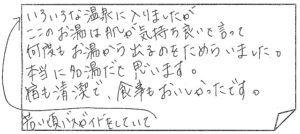 いろいろな温泉に入りましたが
ここのお湯は肌が気持ち良いと言って
何度もお湯から出るのをためらいました。
本当に名湯だと思います。
宿も清潔で、食事もおいしかったです。
若い頃バスガイドをしていて